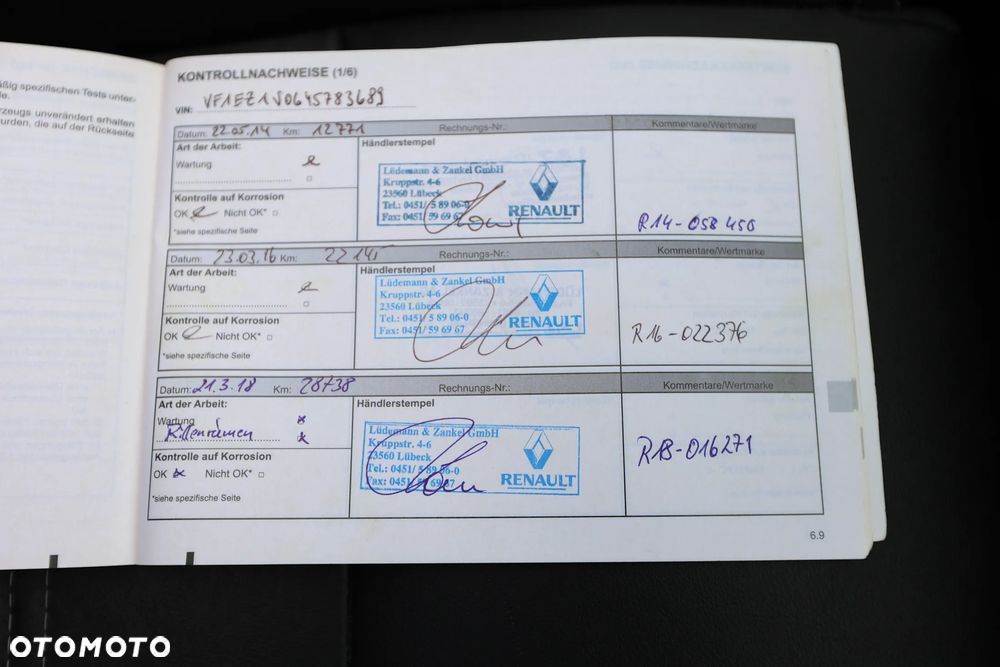 ßig spezifischen Tests unter-
le.
rzeugs unverändert erhalten
urden, die auf der Rückseite
KONTROLLNACHWEISE (1/6)
VIN: VF1EZ1V0645783689
Datum: 22.05.14 Km: 12771 Rechnungs-Nr.: Kommentare/Wertmarke
Art der Arbeit: Händlerstempel
Wartung
Lüdemann & Zankel GmbH
Kruppstr. 4-6
23560 Lübeck
Tel.: 0451/ 5 89 06-0
Fax: 0451/ 59 69 67
RENAULT
Kontrolle auf Korrosion
OK Nicht OK*
*siehe spezifische Seite
R14-058450
Datum: 23.03.16 Km: Rechnungs-Nr.: Kommentare/Wertmarke
Art der Arbeit: Händlerstempel
Wartung
Lüdemann & Zankel GmbH
Kruppstr. 4-6
23560 Lübeck
Tel.: 0451/ 5 89 06-0
Fax: 0451/ 59 69 67
RENAULT
Kontrolle auf Korrosion
OK Nicht OK*
*siehe spezifische Seite
R16-022376
Datum: 21.3.18 Km: 28738 Rechnungs-Nr.: Kommentare/Wertmarke
Art der Arbeit: Händlerstempel
Wartung
Lüdemann & Zankel GmbH
Kruppstr. 4-6
23560 Lübeck
Tel.: 0451/ 5 89 06-0
Fax: 0451/ 59 69 67
RENAULT
Kontrolle auf Korrosion
OK Nicht OK*
*siehe spezifische Seite
R18-016271
6.9
OTOMOTO